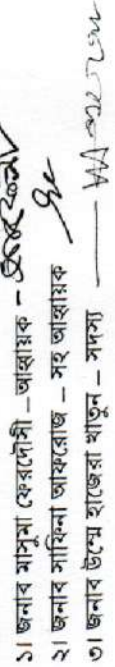 ১। জনাব মাসুমা ফেরদৌসী – আহ্বায়ক –
২। জনাব সাফিনা আফরোজ – সহ আহ্বায়ক
৩। জনাব উম্মে হাজেরা খাতুন – সদস্য –